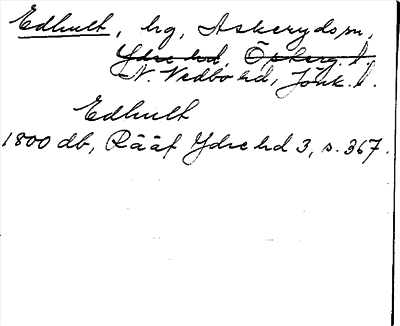 Edhult, hg, Askeryds sn,
Ydre hd, Österg. l.
N. Vedbo hd, Jönk. l.
Edhult
1800 db, Rääf Ydre hd 3, s. 367.